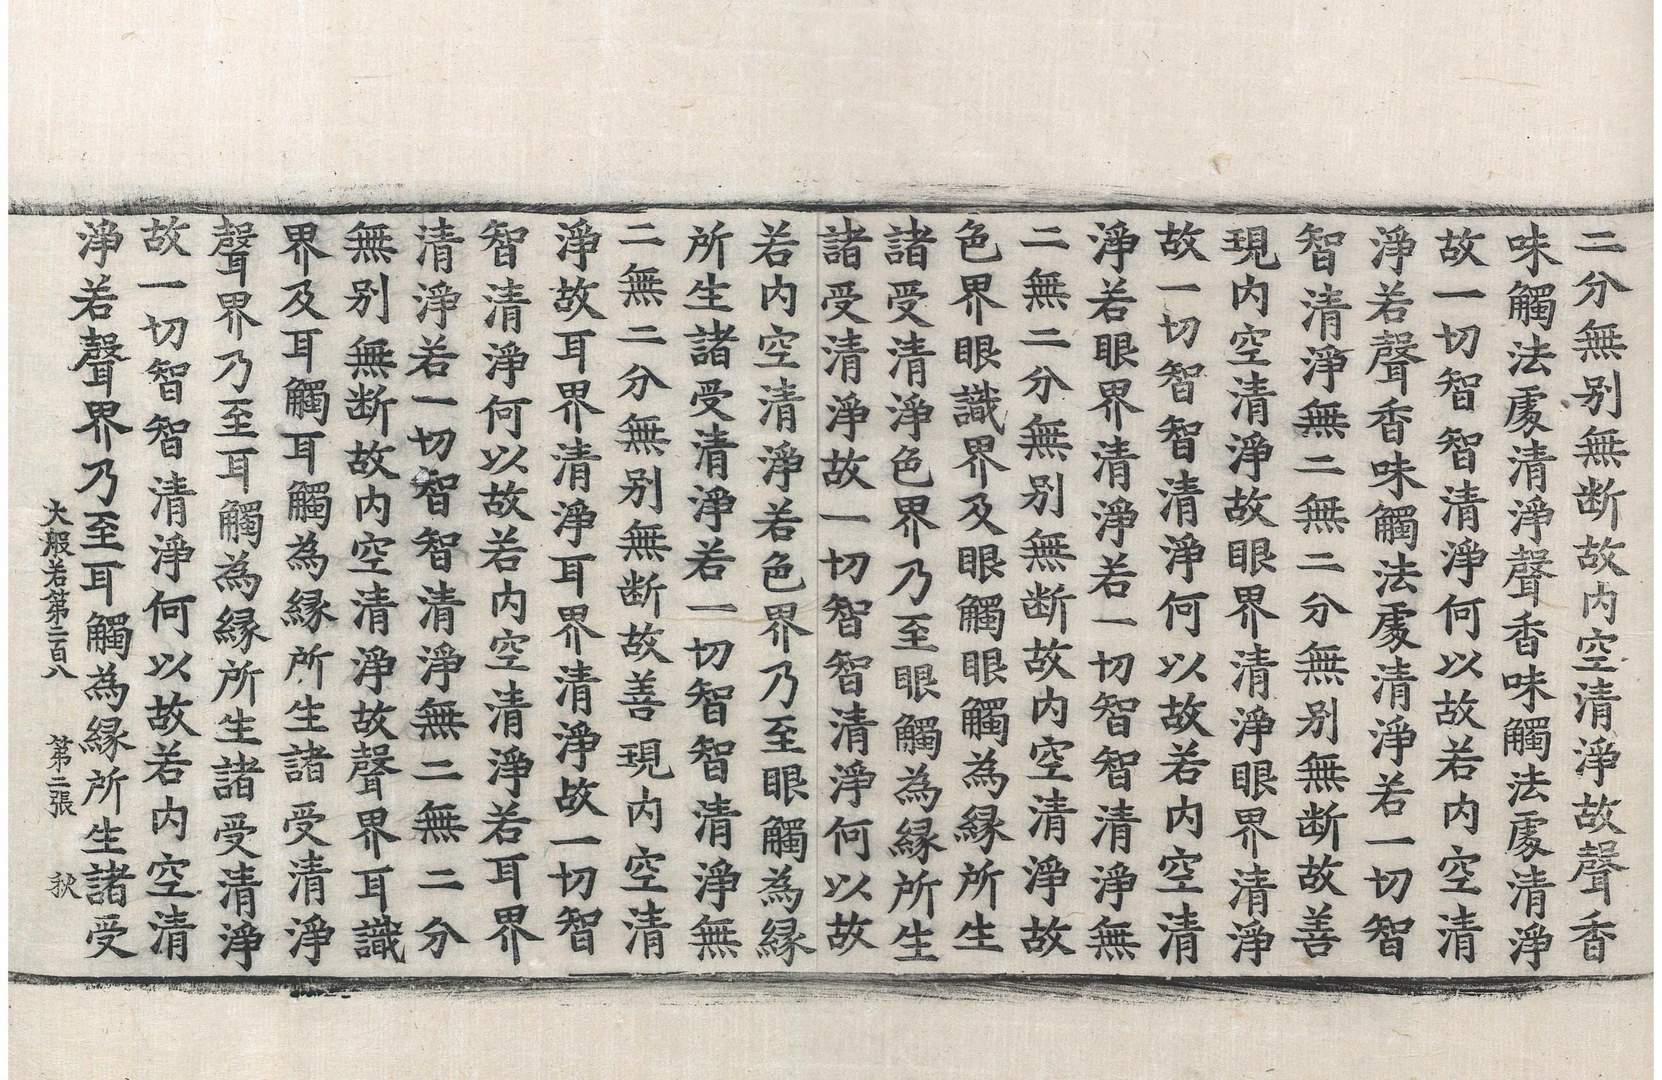 二分無别無断故内空清淨故聲香
味觸法處清淨聲香味觸法處清淨
故一切智智清淨何以故若内空清
淨若聲香味觸法處清淨若一切智
智清淨無二無二分無别無断故善
現内空清淨故眼界清淨眼界清淨
故一切智智清淨何以故若内空清
淨若眼界清淨若一切智智清淨無
二無二分無别無断故内空清淨故
色界眼識界及眼觸眼觸為縁所生
諸受清淨色界乃至眼觸為縁所生
諸受清淨故一切智智清淨何以故
若内空清淨若色界乃至眼觸為縁
所生諸受清淨若一切智智清淨無
二無二分無别無断故善現内空清
淨故耳界清淨耳界清淨故一切智
智清淨何以故若内空清淨若耳界
清淨若一切智智清淨無二無二分
無别無断故内空清淨故聲界耳識
界及耳觸耳觸為縁所生諸受清淨
聲界乃至耳觸為縁所生諸受清淨
故一切智智清淨何以故若内空清
淨若聲界乃至耳觸為縁所生諸受
大般若第二百八 第二張 秋